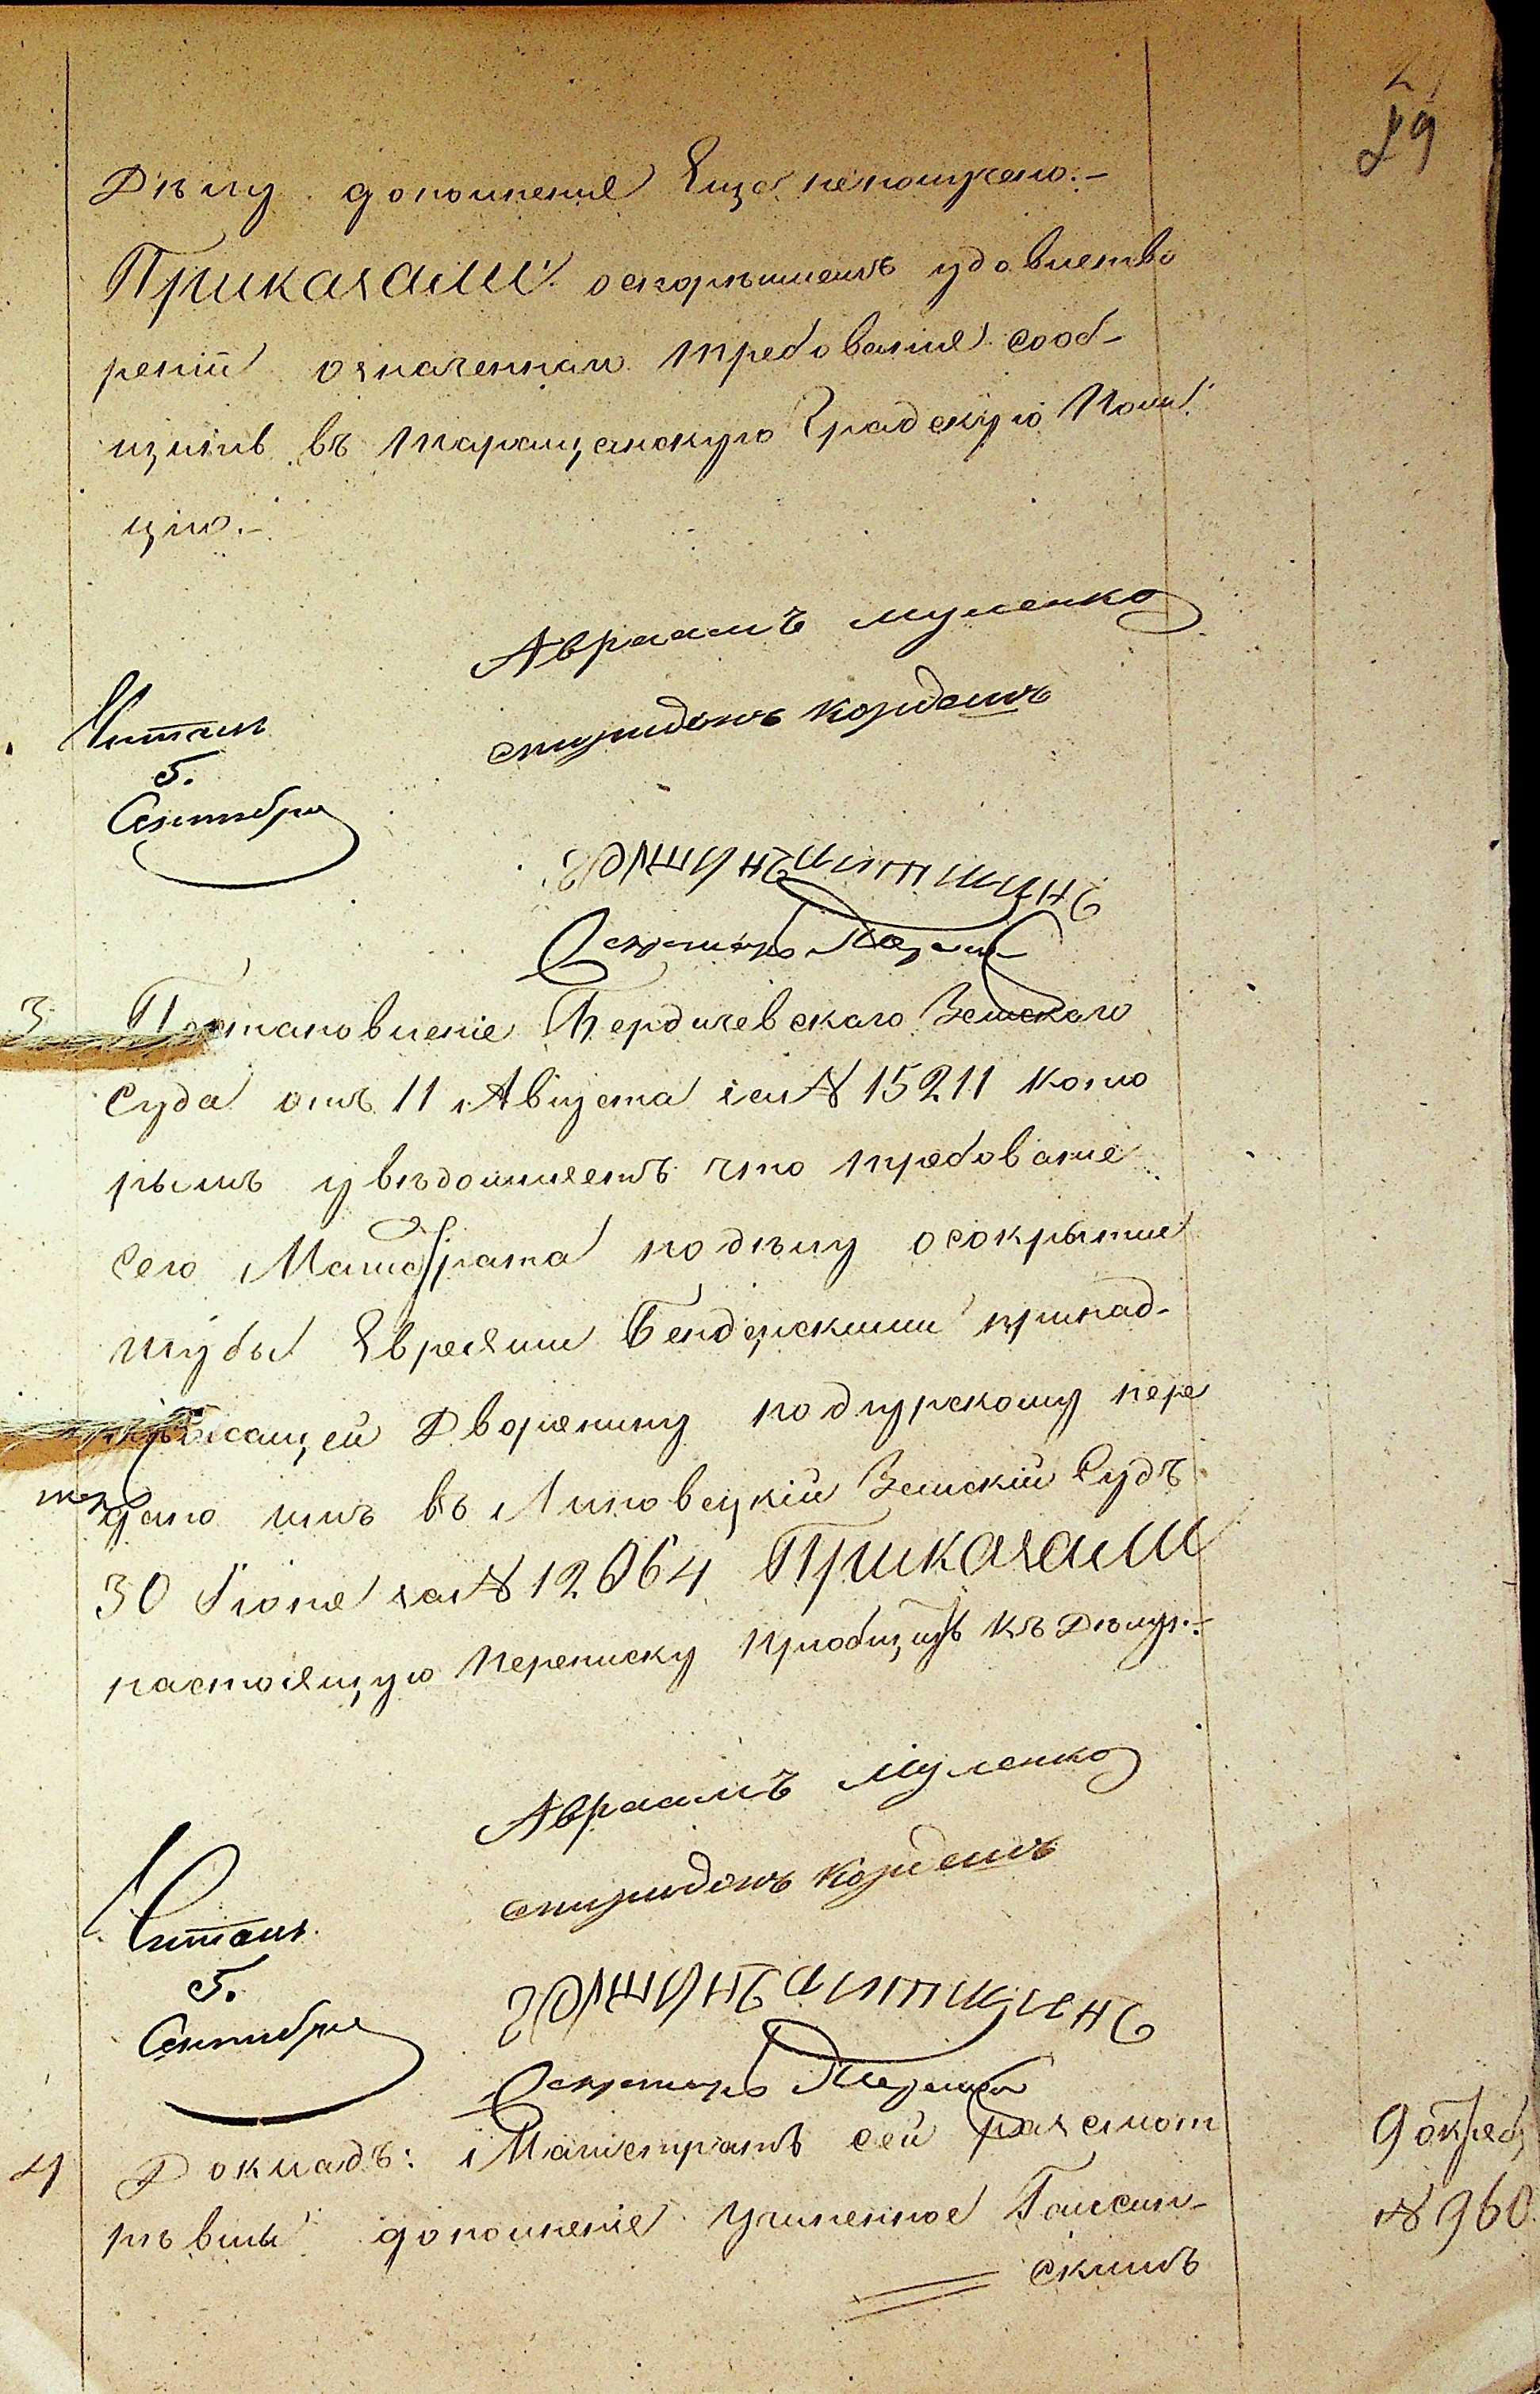 29
Дѣлу дополненіе Еще неполучено.-
Приказали: оскорѣйшемъ удовлетво
реніи означеннаго требованія сооб-
щить въ Таращанскую Градскую Поли
цію.-
Авраамъ Муленко
Спиридонъ Корденъ
Читалъ
5.
Сентября
Секретарь
3 Постановленіе Бердичевскаго Земскаго
Суда отъ 11 Августа за № 15211 кото
рымъ увѣдомляетъ что требованіе
сего Магистрата подѣлу осокрытіи
шубы Евреями Бендерскими принад-
лѣжащей Дворянину подгурскому пере
дано имъ въ Липовецкій Земскій Судъ
30 Іюня за № 12664 Приказали
настоящую переписку пріобщить къ Дѣлу.-
Авраамъ Муленко
Спиридонъ Корденъ
Читалъ
5.
Сентября
Секретарь
4 Докладъ: Магистратъ сей разсмот
рѣвши дополненіе учиненное Гайсин-
скимъ
9 октяб
№ 960